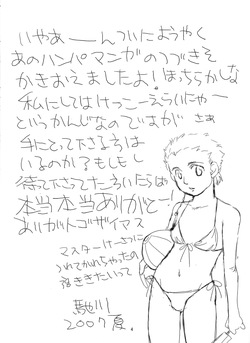 いやあーーんついにおうやく
あのハンパマンガのつづきを
かきおえましたよ!ほっちらかしな
私にしてはけっこーえらいにゃー
というかんじなのですが さぁ
手にとって下さる方は
いるのか?もしもし
待って下さってた方いたらば
本当本当ありがとー!
ありがトゴザイマス
マスターけーさつに
つれてかれちゃったの
馳川
2007夏.